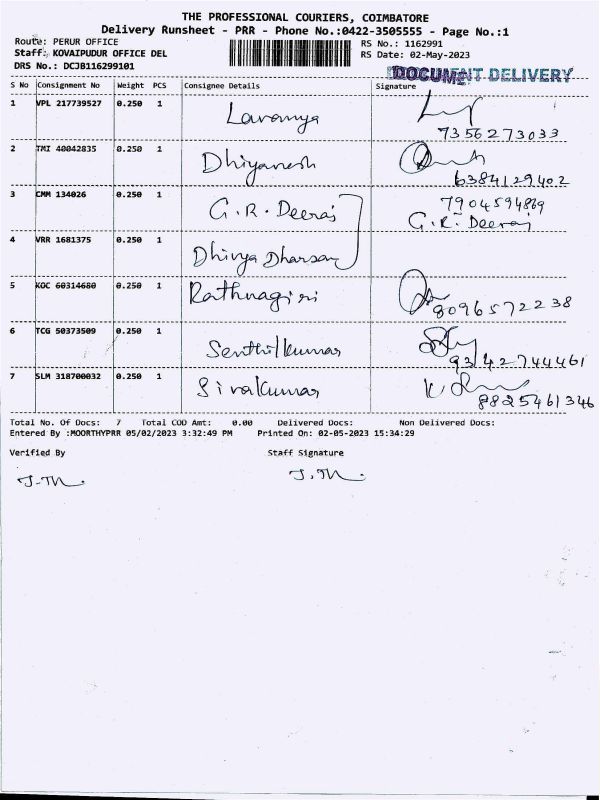 THE PROFESSIONAL COURIERS, COIMBATORE
Delivery Runsheet - PRR - Phone No.:0422-3505555 - Page No.:1
Route: PERUR OFFICE
RS No.: 1162991
Staff: KOVAIPUDUR OFFICE DEL
RS Date: 02-May-2023
DRS No.: DCJB116299101
DOCUMENT DELIVERY
S No Consignment No Weight PCS Consignee Details Signature
1 VPL 217739527 0.250 1 Lavanya
7356273033
2 TMI 40042835 0.250 1 Dhiyanesh
6384129402
3 CMM 134026 0.250 1 G.R. Deeraj 7904594869
G.R. Deeraj
4 VRR 1681375 0.250 1 Dhivya Dharsan
5 KOC 60314680 0.250 1 Rathnagiri
8096572238
6 TCG 50373509 0.250 1 Senthilkumar
9342744461
7 SLM 318700032 0.250 1 Sivakumar
8825461346
Total No. Of Docs: 7 Total COD Amt: 0.00 Delivered Docs: Non Delivered Docs:
Entered By :MOORTHYPRR 05/02/2023 3:32:49 PM Printed On: 02-05-2023 15:34:29
Verified By Staff Signature